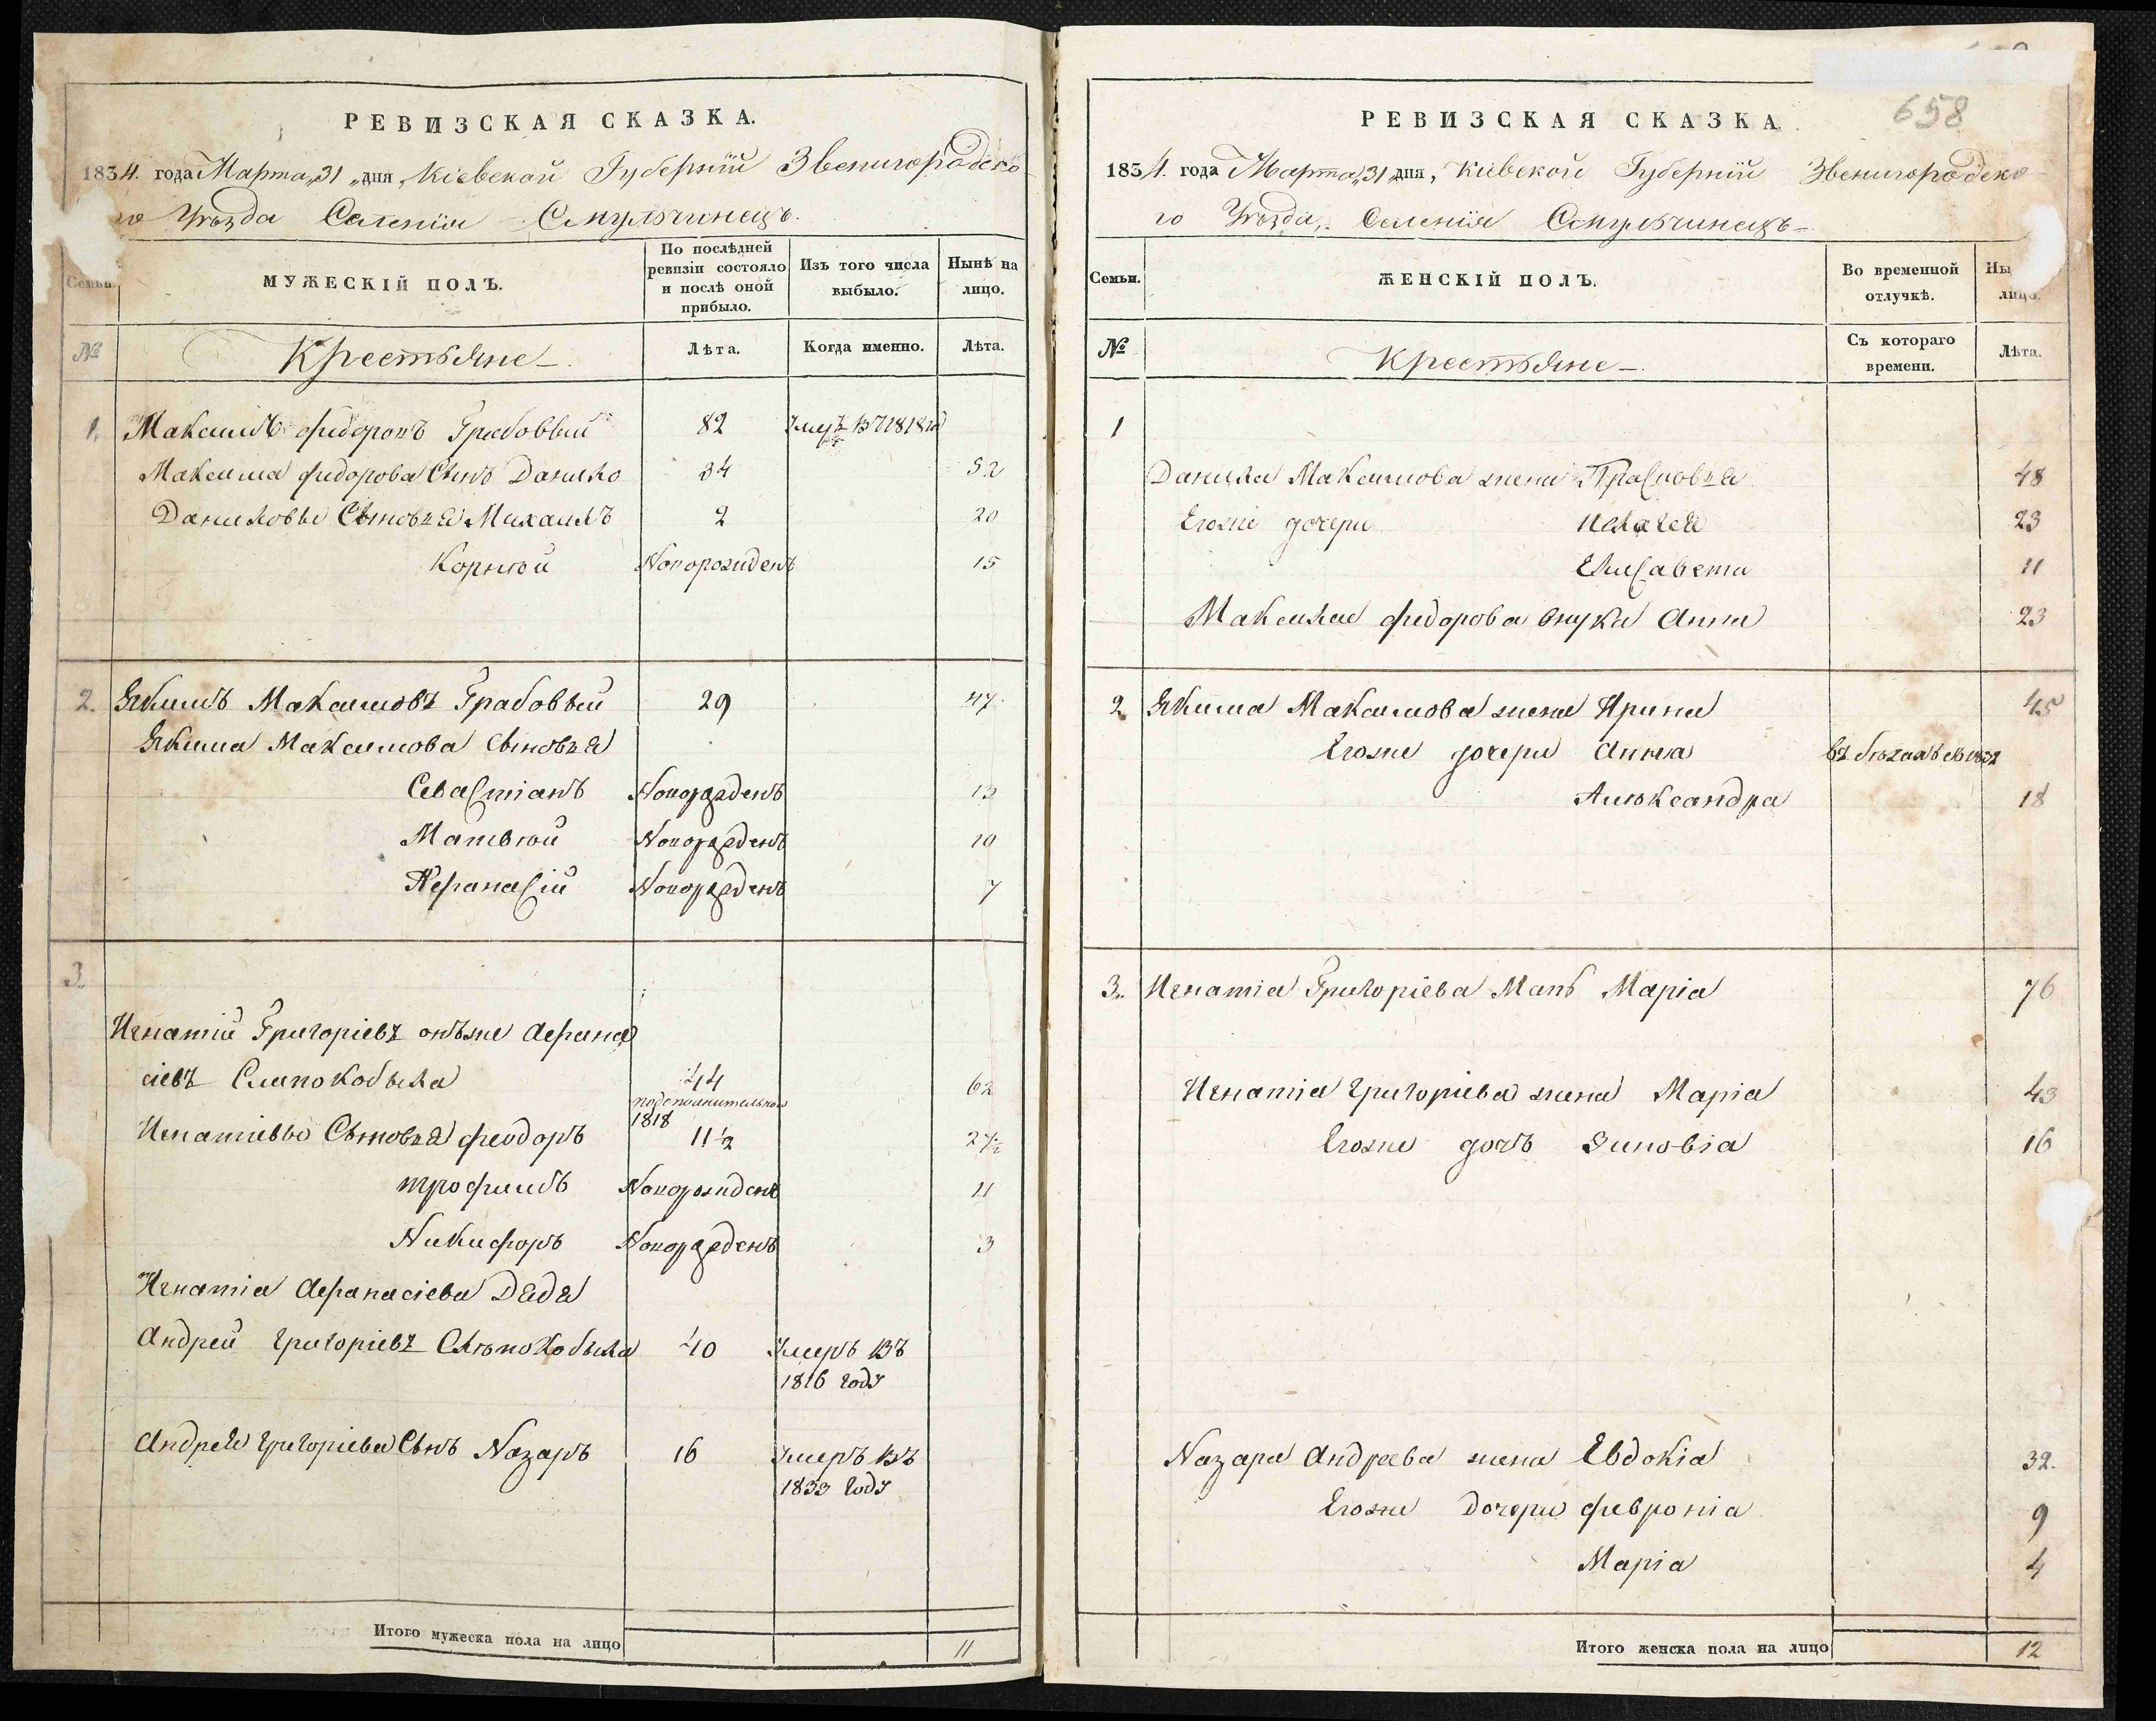 РЕВИЗСКАЯ СКАЗКА.
1834. года Марта 31 дня, Кіевской Губерніи Звенигородско
го Уѣзда Селенія
Семьи.
МУЖЕСКІЙ ПОЛЪ.
По послѣдней ревизіи состояло и послѣ оной прибыло.
Изъ того числа выбыло.
Нынѣ на лицо.
№
Крестьяне
Лѣта.
Когда именно.
Лѣта.
1. Максимъ Федоровъ Грабовый 82 1818
Максима Федорова Сынъ Данило 34 52
Даниловы Сыновья Михаилъ 2 20
Корнѣй Новорожденъ 15
2. Якимъ Максимовъ Грабовый 29 47
Якима Максимова Сыновья
Севастіанъ Новорожденъ 13
Матвѣй Новорожденъ 10
Афанасій Новорожденъ 7
3.
Игнатій Григоріевъ онъже Афана
сіевъ Слѣпокобыла 44 62
1818
Игнатіевы Сыновья Феодоръ 11½ 27½
Трофимъ Новорожденъ 11
Никифоръ Новорожденъ 3
Игнатія Афанасіева Дядя
Андрей Григоріевъ Слѣпокобыла 40 Умеръ въ
1816 году
Андрея Григоріева Сынъ Назаръ 16 Умеръ въ
1833 году
Итого мужеска пола на лицо 11
658
РЕВИЗСКАЯ СКАЗКА.
1834. года Марта 31 дня, Кіевской Губерніи Звенигородско
го Уѣзда, Селенія
Семьи.
ЖЕНСКІЙ ПОЛЪ.
Во временной отлучкѣ.
Ны
лицо.
№
Крестьяне
Съ котораго времени.
Лѣта.
1
Данила Максимова жена 48
Егоже дочери Пелагея 23
Елисавета 11
Максима Федорова внука Анна 23
2 Якима Максимова жена Ирина 45
Егоже дочери Анна въ бѣгахъ съ 1832
Александра 18
3. Игнатія Григоріева Мать Марія 76
Игнатія Григоріева жена Марія 43
Егоже дочь Зиновія 16
Назара Андреева жена Евдокія 32.
Егоже Дочери Февронія 9
Марія 4
Итого женска пола на лицо 12